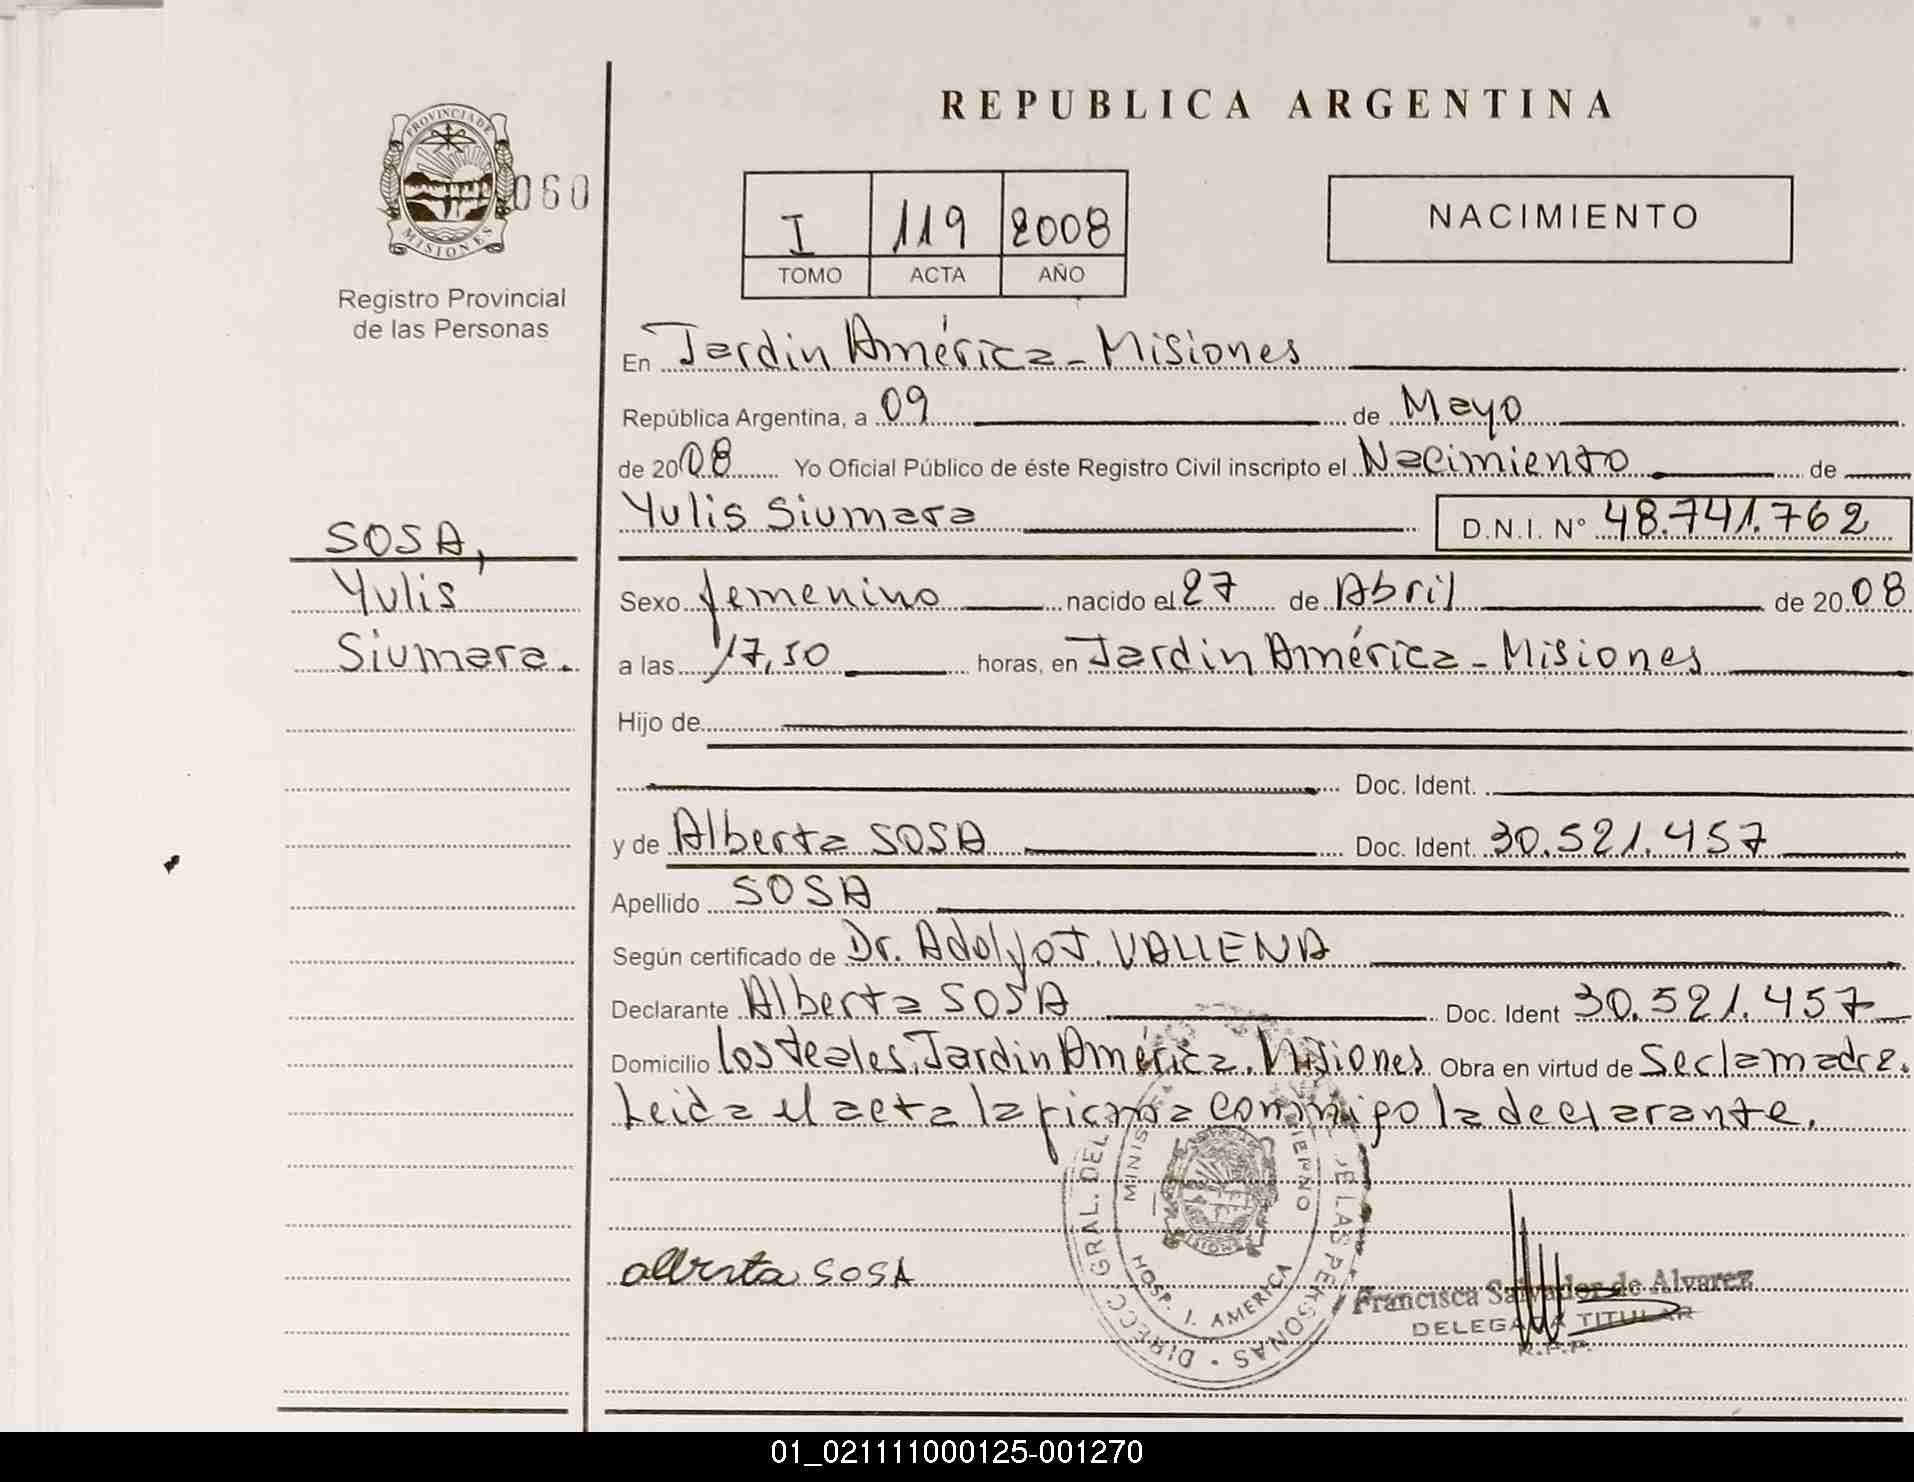 REPUBLICA ARGENTINA
PROVINCIA DE
MISIONES
060
Registro Provincial
de las Personas
I 119 2008
TOMO ACTA AÑO
NACIMIENTO
En Jardin América - Misiones
República Argentina, a 09 de Mayo
de 2008 Yo Oficial Público de éste Registro Civil inscripto el Nacimiento de
Yulis Siumara D.N.I. Nº 48.741.762
SOSA,
Yulis
Siumara.
Sexo femenino nacido el 27 de Abril de 2008
a las 17,50 horas, en Jardin América - Misiones
Hijo de
Doc. Ident.
y de Alberta SOSA Doc. Ident. 30.521.457
Apellido SOSA
Según certificado de Dr. Adolfo J. VALLENA
Declarante Alberta SOSA Doc. Ident 30.521.457
Domicilio los teales, Jardin América. Misiones. Obra en virtud de Ser la madre.
Leida el acta la firma conmigo la declarante.
DIRECC GRAL. DEL DE LAS PERSONAS
HOSP. J. AMERICA
MISIONES
alberta SOSA
Francisca Salvador de Alvarez
DELEGADA TITULAR
R.P.P.
01_021111000125-001270